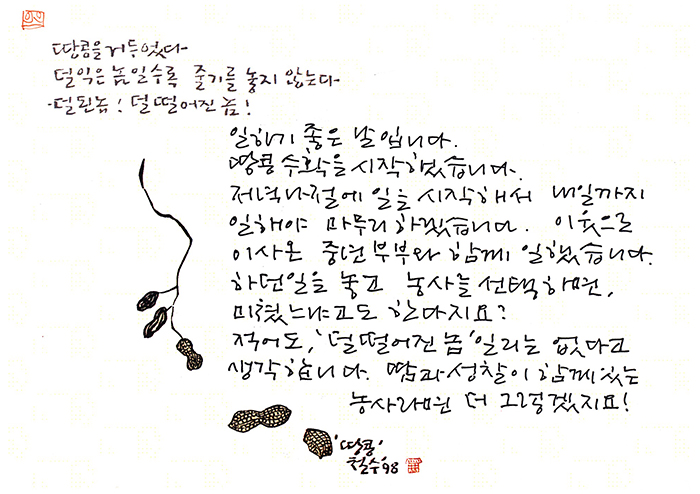 땅콩을 거두었다
덜익은 놈일수록 줄기를 놓지 않는다
덜된놈! 덜떨어진 놈!
일하기 좋은 날입니다.
땅콩 수확을 시작했습니다.
저녁나절에 일을 시작해서 내일까지
일해야 마무리하겠습니다. 이웃으로
이사온 중년부부와 함께 일했습니다.
하던일을 놓고 농사를 선택하면,
미쳤느냐고도 한다지요?
적어도, '덜떨어진 놈'일리는 없다고
생각합니다. 땀과 성찰이 함께 있는
농사라면 더 그렇겠지요!
'땅콩'
철수 '98